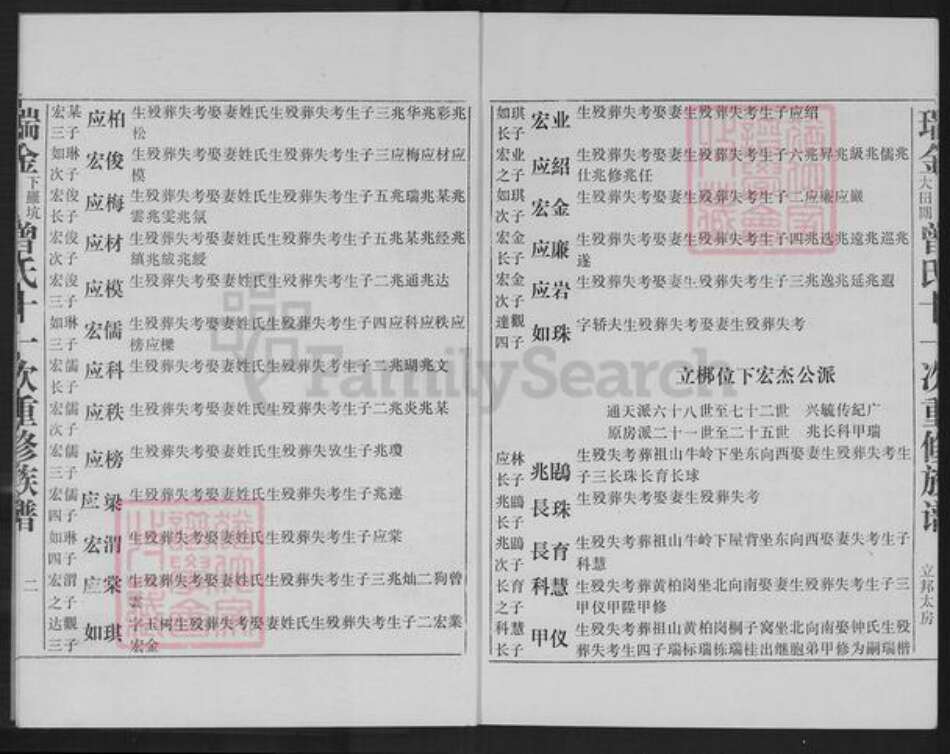 瑞金下羅坑曾氏十一次重修族譜
二
宏某三子 应柏 生殁葬失考娶妻姓氏生殁葬失考生子三兆华兆彩兆
松
如琳次子 宏俊 生殁葬失考娶妻姓氏生殁葬失考生子三应梅应材应
模
宏俊长子 应梅 生殁葬失考娶妻姓氏生殁葬失考生子五兆瑞兆某兆
雲兆雯兆氛
宏俊次子 应材 生殁葬失考娶妻姓氏生殁葬失考生子五兆某兆经兆
镇兆绂兆綬
宏浚三子 应模 生殁葬失考娶妻姓氏生殁葬失考生子二兆通兆达
如琳三子 宏儒 生殁葬失考娶妻姓氏生殁葬失考生子四应科应秩应
榜应樑
宏儒长子 应科 生殁葬失考娶妻姓氏生殁葬失考生子二兆瑚兆文
宏儒次子 应秩 生殁葬失考娶妻姓氏生殁葬失考生子二兆炎兆某
宏儒三子 应榜 生殁葬失考娶妻姓氏生殁葬失攷生子兆瓊
宏儒四子 应梁 生殁葬失考娶妻姓氏生殁葬失考生子兆連
如琳四子 宏渭 生殁葬失考娶妻姓氏生殁葬失考生子应棠
宏渭之子 应棠 生殁葬失考娶妻姓氏生殁葬失考生子三兆灿二狗曾
雲
达觀三子 如琪 字玉树生殁葬失考娶妻姓氏生殁葬失考生子二宏業
宏金
瑞金大田曾氏十一次重修族谱
立邦太房
如琪长子 宏业 生殁葬失考娶妻生殁葬失考生子应绍
宏业之子 应紹 生殁葬失考娶妻生殁葬失考生子六兆昇兆級兆儒兆
仕兆修兆任
如琪次子 宏金 生殁葬失考娶妻生殁葬失考生子二应廉应巖
宏金长子 应廉 生殁葬失考娶妻生殁葬失考生子四兆选兆遠兆巡兆
遂
宏金次子 应岩 生殁葬失考娶妻生殁葬失考生子三兆逸兆延兆遐
達觀四子 如珠 字轿夫生殁葬失考娶妻生殁葬失考
立梆位下宏杰公派
通天派六十八世至七十二世 兴毓传紀广
原房派二十一世至二十五世 兆长科甲瑞
应林长子 兆鷗 生殁失考葬祖山牛岭下坐东向西娶妻生殁葬失考生
子三长珠长育长球
兆鷗长子 長珠 生殁葬失考娶妻生殁葬失考
兆鷗次子 長育 生殁失考葬祖山牛岭下屋背坐东向西娶妻失考生子
科慧
长育之子 科慧 生殁失考葬黄柏岗坐北向南娶妻生殁葬失考生子三
甲仪甲陞甲修
科慧长子 甲仪 生殁失考葬祖山黄柏岗桐子窝坐北向南娶钟氏生殁
葬失考生四子瑞标瑞栋瑞桂出继胞弟甲修为嗣瑞楷
FamilySearch